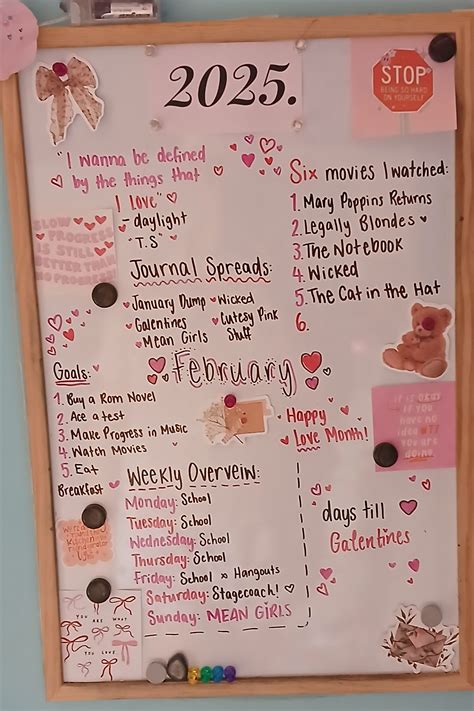 2025.
STOP
BEING SO HARD
ON YOURSELF
"I wanna be defined
by the things that
I love"
- daylight
"T.S"
SLOW
PROGRESS
IS STILL
BETTER THAN
NO PROGRESS
Six movies I watched:
1. Mary Poppins Returns
2. Legally Blondes
3. The Notebook
4. Wicked
5. The Cat in the Hat
6.
Journal Spreads:
January Dump
Wicked
Galentines
Cutesy Pink
Stuff
Mean Girls
February
Goals:
1. Buy a Rom Novel
2. Ace a test
3. Make Progress in Music
4. Watch Movies
5. Eat
Breakfast
Happy
Love Month!
it is okay
if you have
no idea
you are
doing
Weekly Overveiw:
Monday: School
Tuesday: School
Wednesday: School
Thursday: School
Friday: School x Hangouts
Saturday: Stagecoach!
Sunday: MEAN GIRLS
days till
Galentines
YOU ARE WHAT
YOU LOVE